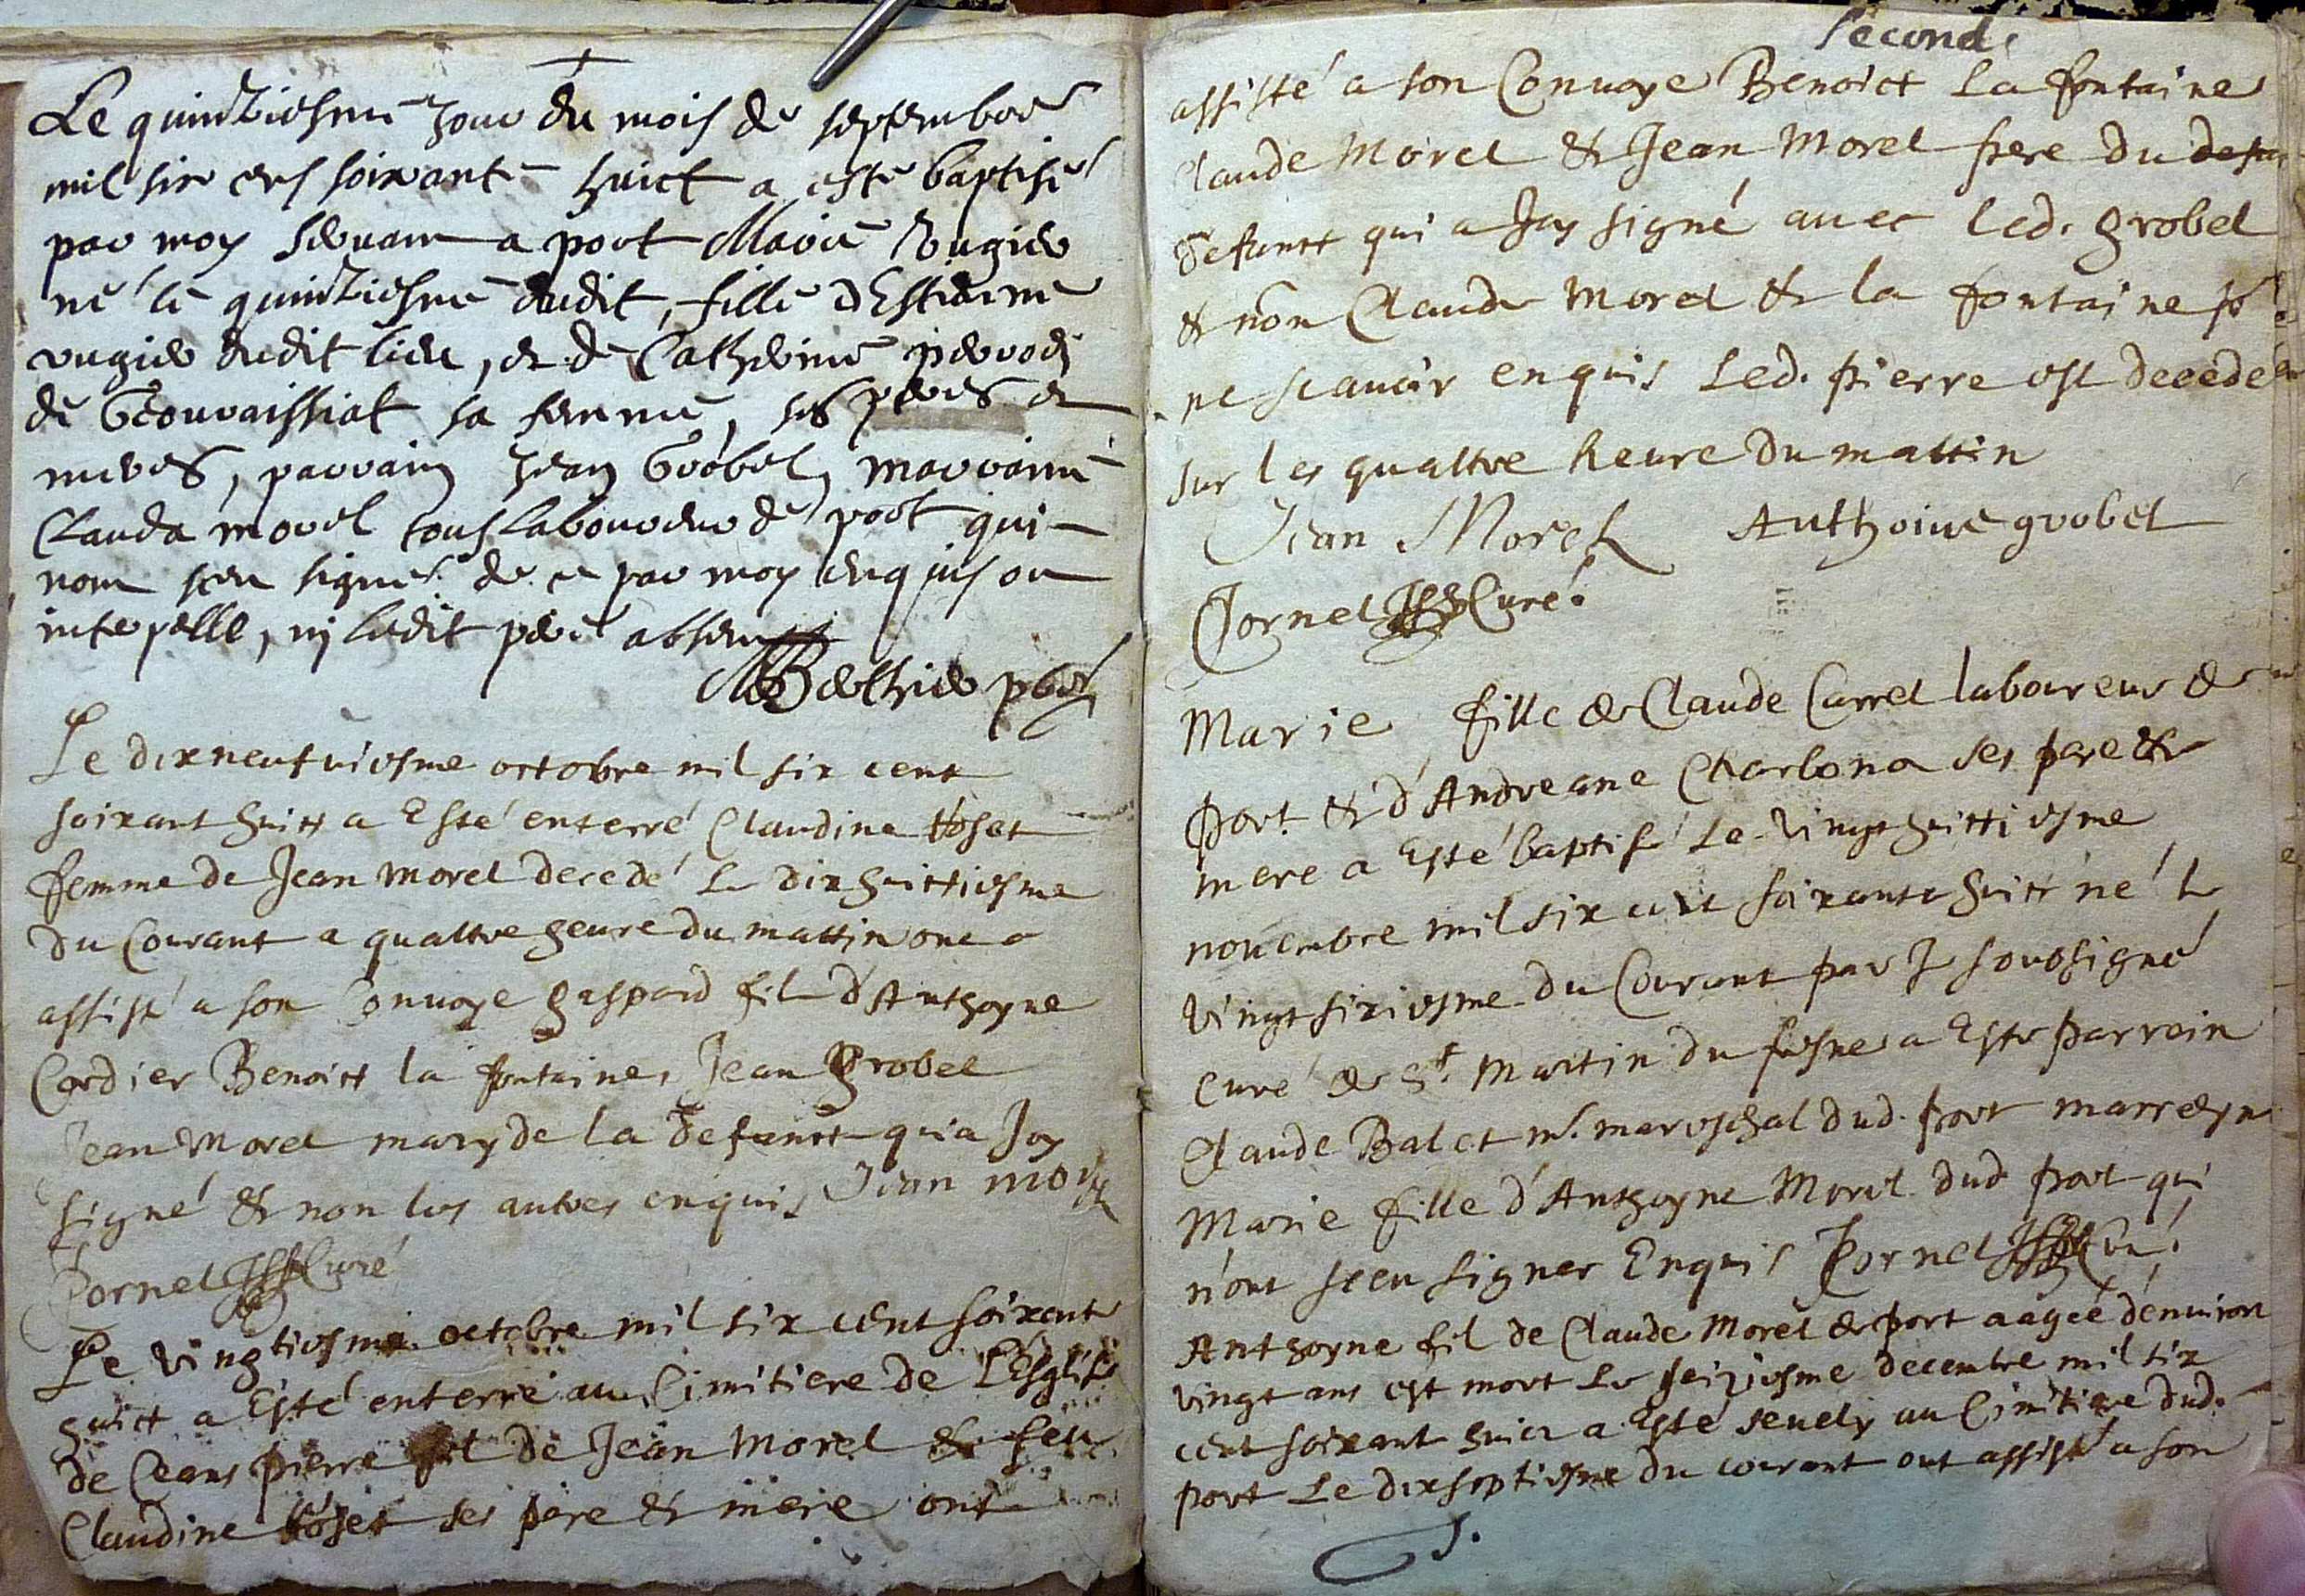 Le quinziesme jour du mois de septembre
mil six cens soixante huict a esté baptisé
par moy servant a port Marie Rugier
né le quinziesme dudit, fille d'Estienne
rugier dudit lieu, et de Catherine
de Geovreissiat sa femme, ses peres et
meres, parrain Jean Grobel, marraine
Clauda morel tous laboureur de port qui
nom sceu signer de ce par moy enquis ou
interpelle, nj ledit père absent
Berthier
Le dixneufuiesme octobre mil six cent
soixant huict a Esté enterré Claudine
femme de Jean Morel decedé le dixhuictiesme
du Courant a quattre heure du mattin one
assisté a son Convoye gaspard fils d'Anthoyne
Cordier Benoict la fontaine, Jean Grobel
Jean Morel mary de la defuncte qui a Icy
signé & non les autres enquis Jean morel
Cornet Curé
Le vingtiesme octobre mil six cent soixant
huict a Esté enterré au Cimitiere de L'Esglise
de Ceans pierre fil de Jean Morel & feu
Claudine ses père & mere ont
second
assisté a son Convoye Benoict La fontaine
Claude Morel & Jean Morel frere du
defunct qui a Icy signé avec led. grobel
& non Claude Morel & la fontaine pr
ne scavoir enquis Led. pierre est decedé
sur les quattre heure du mattin
Jean Morel Anthoine grobel
Cornet Curé
Marie fille de Claude Carrel laboureur de
port & d'Andreane Charlona ses pere &
mere a Esté baptisé Le vingt huittiesme
novembre mil six cent soixante huict né le
vingt sixiesme du Courant par Je soubsigné
curé de St. Martin du fresne a Este parrein
Claude Balet m. mareschal dud. port marreyne
Marie fille d'Anthoyne Morel dud. port qui
n'ont sceu signer Enquis Cornet Curé
Anthoyne fil de Claude Morel de port aagée d'environ
vingt ans est mort Le seiziesme decembre mil six
cent soixant huict a Esté sevely au Cimitiere dud.
port Le dixseptiesme du courant ont assisté a son